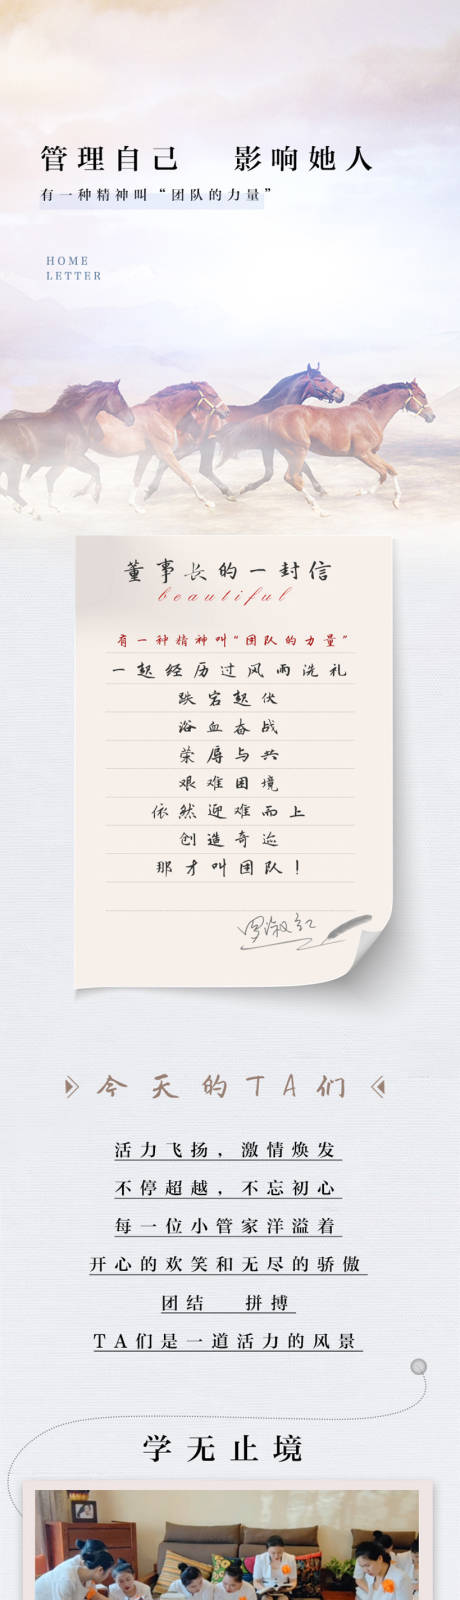 管理自己 影响她人
有一种精神叫“团队的力量”
HOME
LETTER
董事长的一封信
beautiful
有一种精神叫“团队的力量”
一起经历过风雨洗礼
跌宕起伏
浴血奋战
荣辱与共
艰难困境
依然迎难而上
创造奇迹
那才叫团队！
罗淑红
今天的TA们
活力飞扬，激情焕发
不停超越，不忘初心
每一位小管家洋溢着
开心的欢笑和无尽的骄傲
团结 拼搏
TA们是一道活力的风景
学无止境